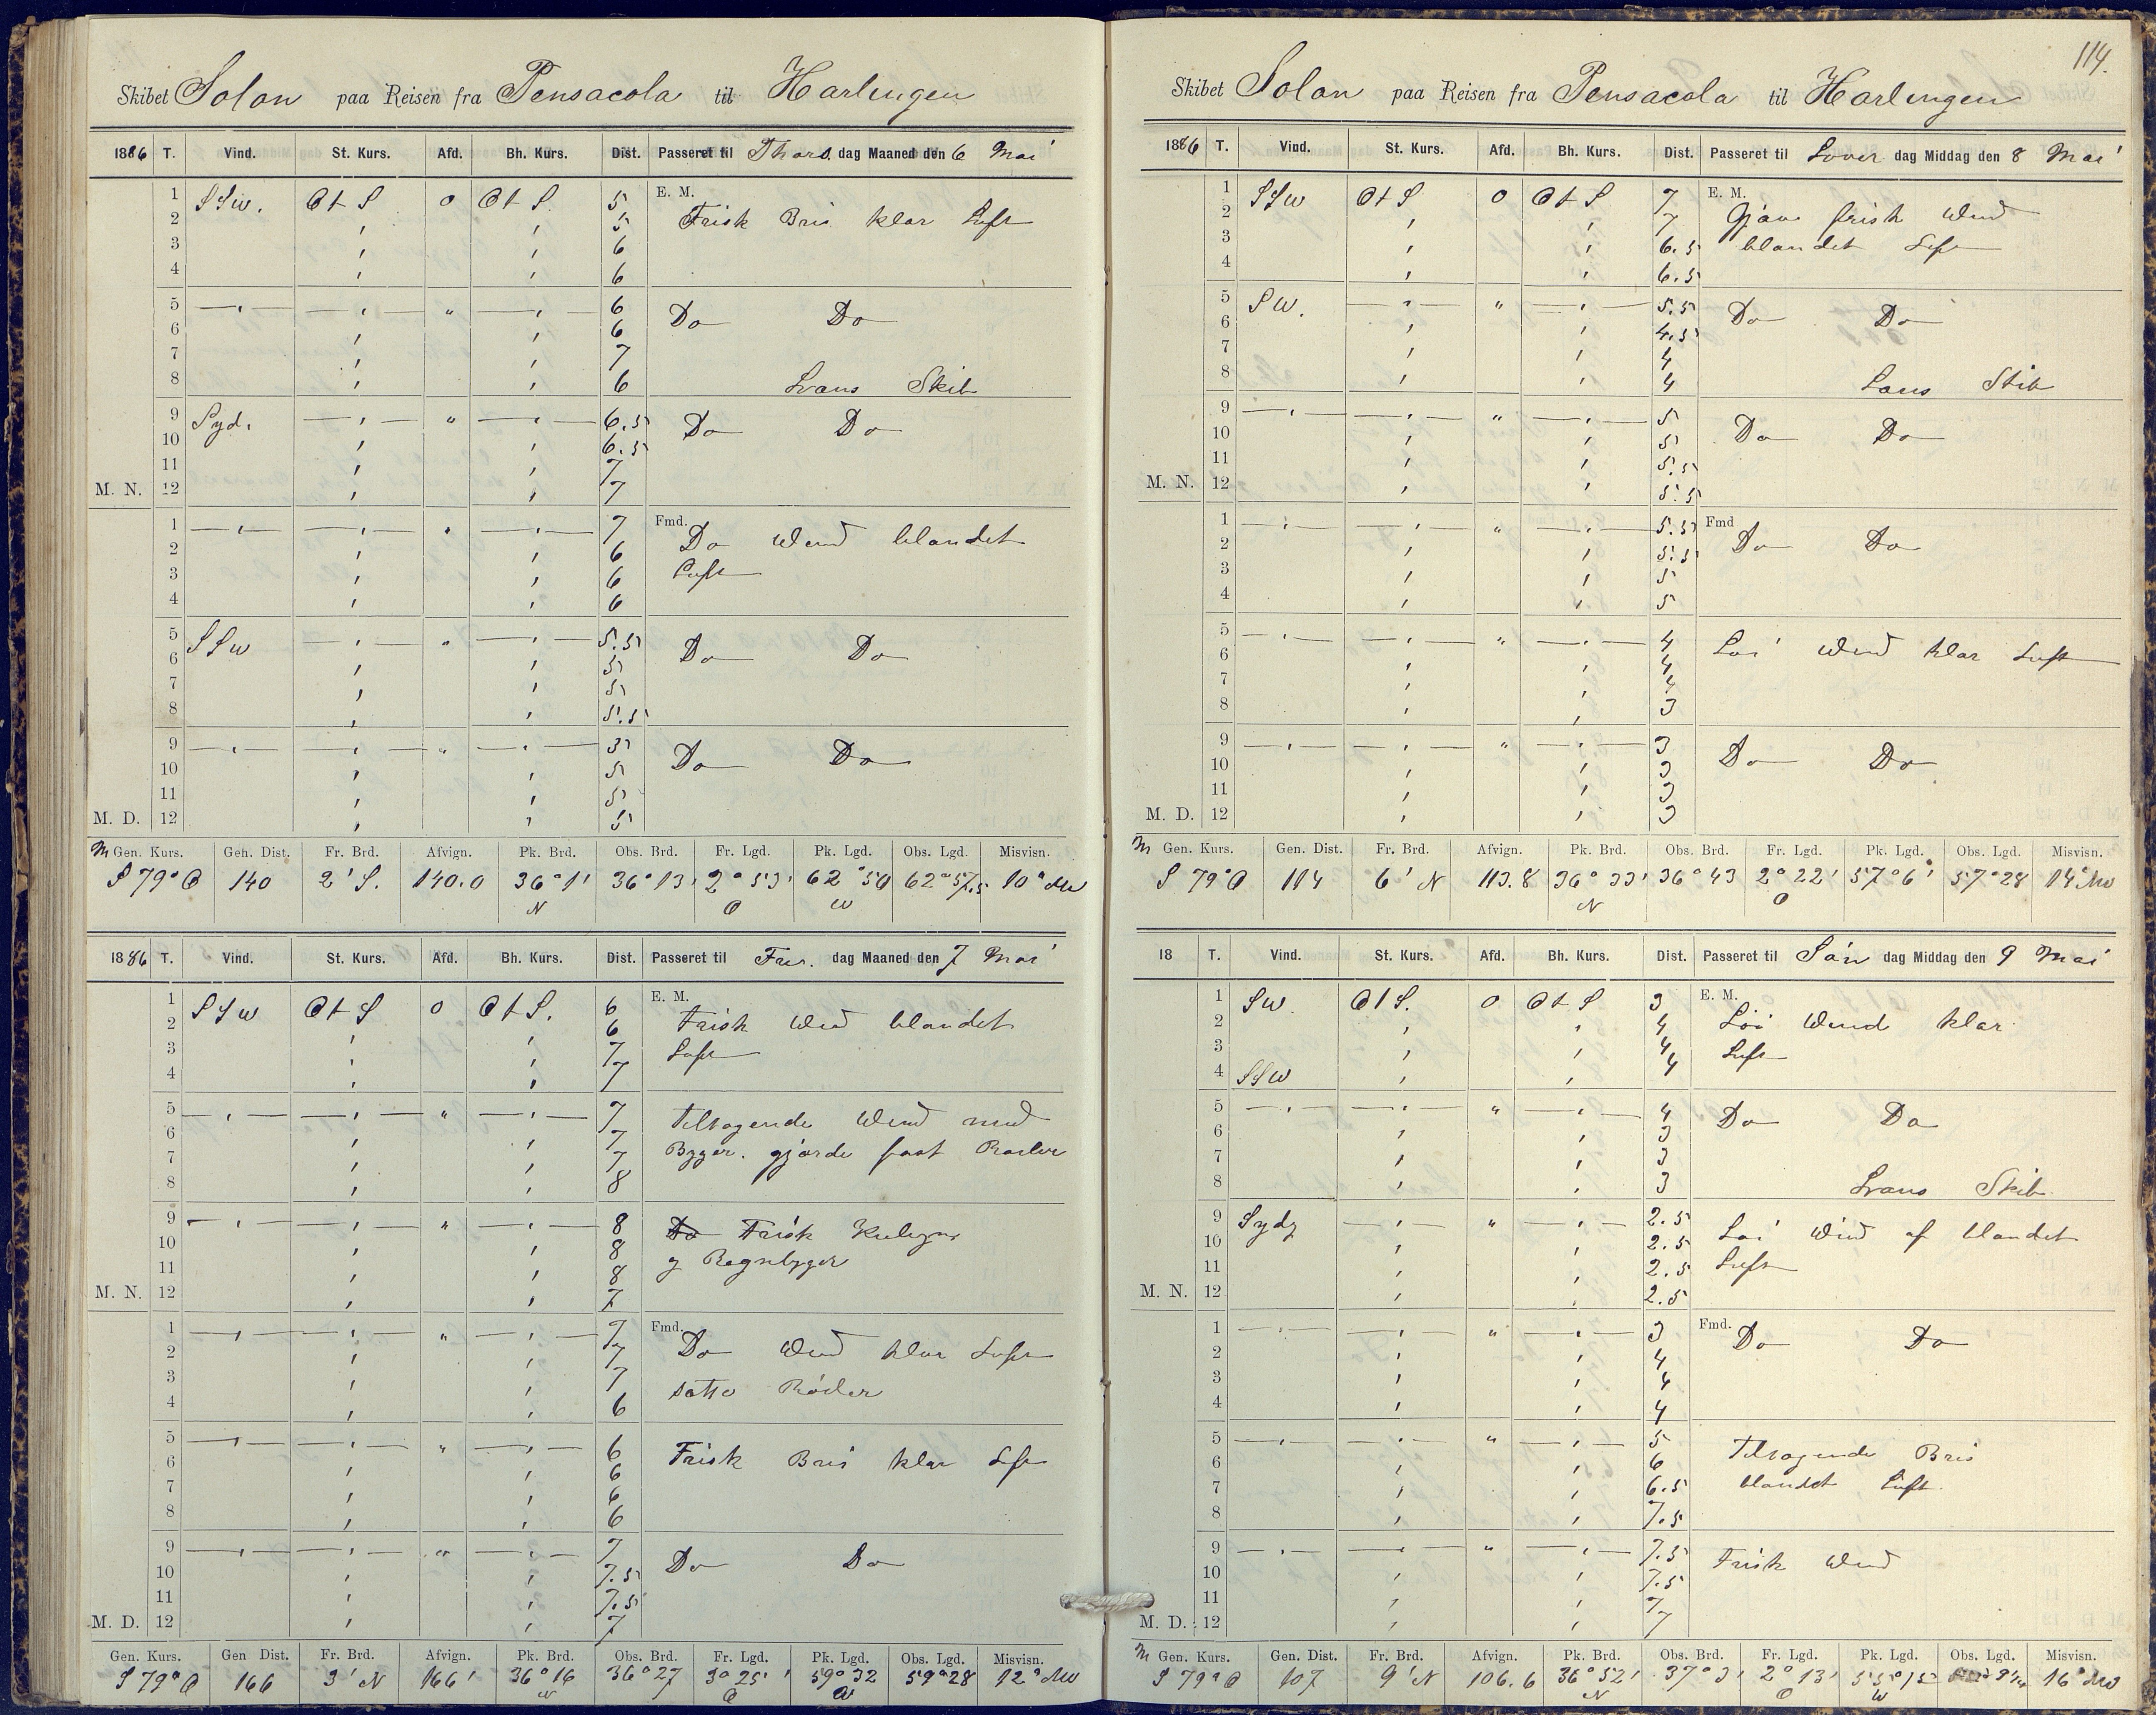 Skibet Solon paa Reisen fra Pensacola til Harlingen
1886 T. Vind. St. Kurs. Afd. Bh. Kurs. Dist. Passeret til Thors dag Maaned den 6 Mai
1 SSW. O t S 0 O t S. 5 E. M.
2 5 Frisk Bris klar Luft
3 6
4 6
5 " 6 Do Do
6 6
7 7
8 6 Lans Skib
9 Syd. " 6.5 Do Do
10 6.5
11 7
M. N. 12 7
1 " 7 Fmd. Do Wind blandet
2 6 Luft
3 6
4 6
5 SSW " 5.5 Do Do
6 5
7 5
8 5.5
9 " 5 Do Do
10 5
11 5
M. D. 12 5
M Gen. Kurs. Gen. Dist. Fr. Brd. Afvign. Pk. Brd. Obs. Brd. Fr. Lgd. Pk. Lgd. Obs. Lgd. Misvisn.
S 79° O 140 2' S. 140.0 36° 1' N 36° 13' 2° 53' O 62° 50 W 62° 57.5 10° NW
1886 T. Vind. St. Kurs. Afd. Bh. Kurs. Dist. Passeret til Fre. dag Maaned den 7 Mai
1 SSW O t S 0 O t S. 6 E. M.
2 6 Frisk Wind blandet
3 7 Luft
4 7
5 " 7 Tiltagende Wind med
6 7
7 7 Byger. gjorde fast Røiler
8 8
9 " 8 Do Frisk Kuling
10 8 og Regnbyger
11 8
M. N. 12 7
1 " 7 Fmd. Do Wind klar Luft
2 7
3 7 satte Røiler
4 6
5 " 6 Frisk Bris klar Luft
6 6
7 6
8 6
9 " 7 Do Do
10 7.5
11 7.5
M. D. 12 7
Gen. Kurs. Gen Dist. Fr. Brd. Afvign. Pk. Brd. Obs. Brd. Fr. Lgd. Pk. Lgd. Obs. Lgd. Misvisn.
S 79° O 166 3' N 166' 36° 16 N 36° 27 3° 25' O 59° 32 W 59° 28 12° NW
114.
Skibet Solon paa Reisen fra Pensacola til Harlingen
1886 T. Vind. St. Kurs. Afd. Bh. Kurs. Dist. Passeret til Løver dag Middag den 8 Mai
1 SSW O t S 0 O t S 7 E. M.
2 7 Gjæv frisk Wind
3 6.5 blandet Luft
4 6.5
5 SW. " 5.5 Do Do
6 4.5
7 4
8 4 Lans Skib
9 " 5 Do Do
10 5
11 5.5
M. N. 12 5.5
1 " 5.5 Fmd Do Do
2 5.5
3 5
4 5
5 " 4 Løi Wind klar Luft
6 4
7 4
8 3
9 " 3 Do Do
10 3
11 3
M. D. 12 3
M Gen. Kurs. Gen. Dist. Fr. Brd. Afvign. Pk. Brd. Obs. Brd. Fr. Lgd. Pk. Lgd. Obs. Lgd. Misvisn.
S 79° O 114 6' N 113.8 36° 33' N 36° 43 2° 22' O 57° 6' 57° 28 14° NW
18 T. Vind. St. Kurs. Afd. Bh. Kurs. Dist. Passeret til Søn dag Middag den 9 Mai
1 SW. O t S. 0 O t S 3 E. M.
2 4 Løi Wind klar
3 4 Luft
4 SSW 4
5 " 4 Do Do
6 3
7 3
8 3 Lans Skib
9 Sydl " 2.5 Løi Wind af blandet
10 2.5
11 2.5 Luft
M. N. 12 2.5
1 " 3 Fmd. Do Do
2 4
3 4
4 4
5 " 5 Tiltagende Bris
6 6
7 6.5 blandet Luft
8 7.5
9 " 7.5 Frisk Wind
10 7.5
11 7
M. D. 12 7
M Gen. Kurs. Gen. Dist. Fr. Brd. Afvign. Pk. Brd. Obs. Brd. Fr. Lgd. Pk. Lgd. Obs. Lgd. Misvisn.
S 79° O 107 9' N 106.6 36° 52' N 37° 3' 2° 13' O 55° 15 W 16° NW